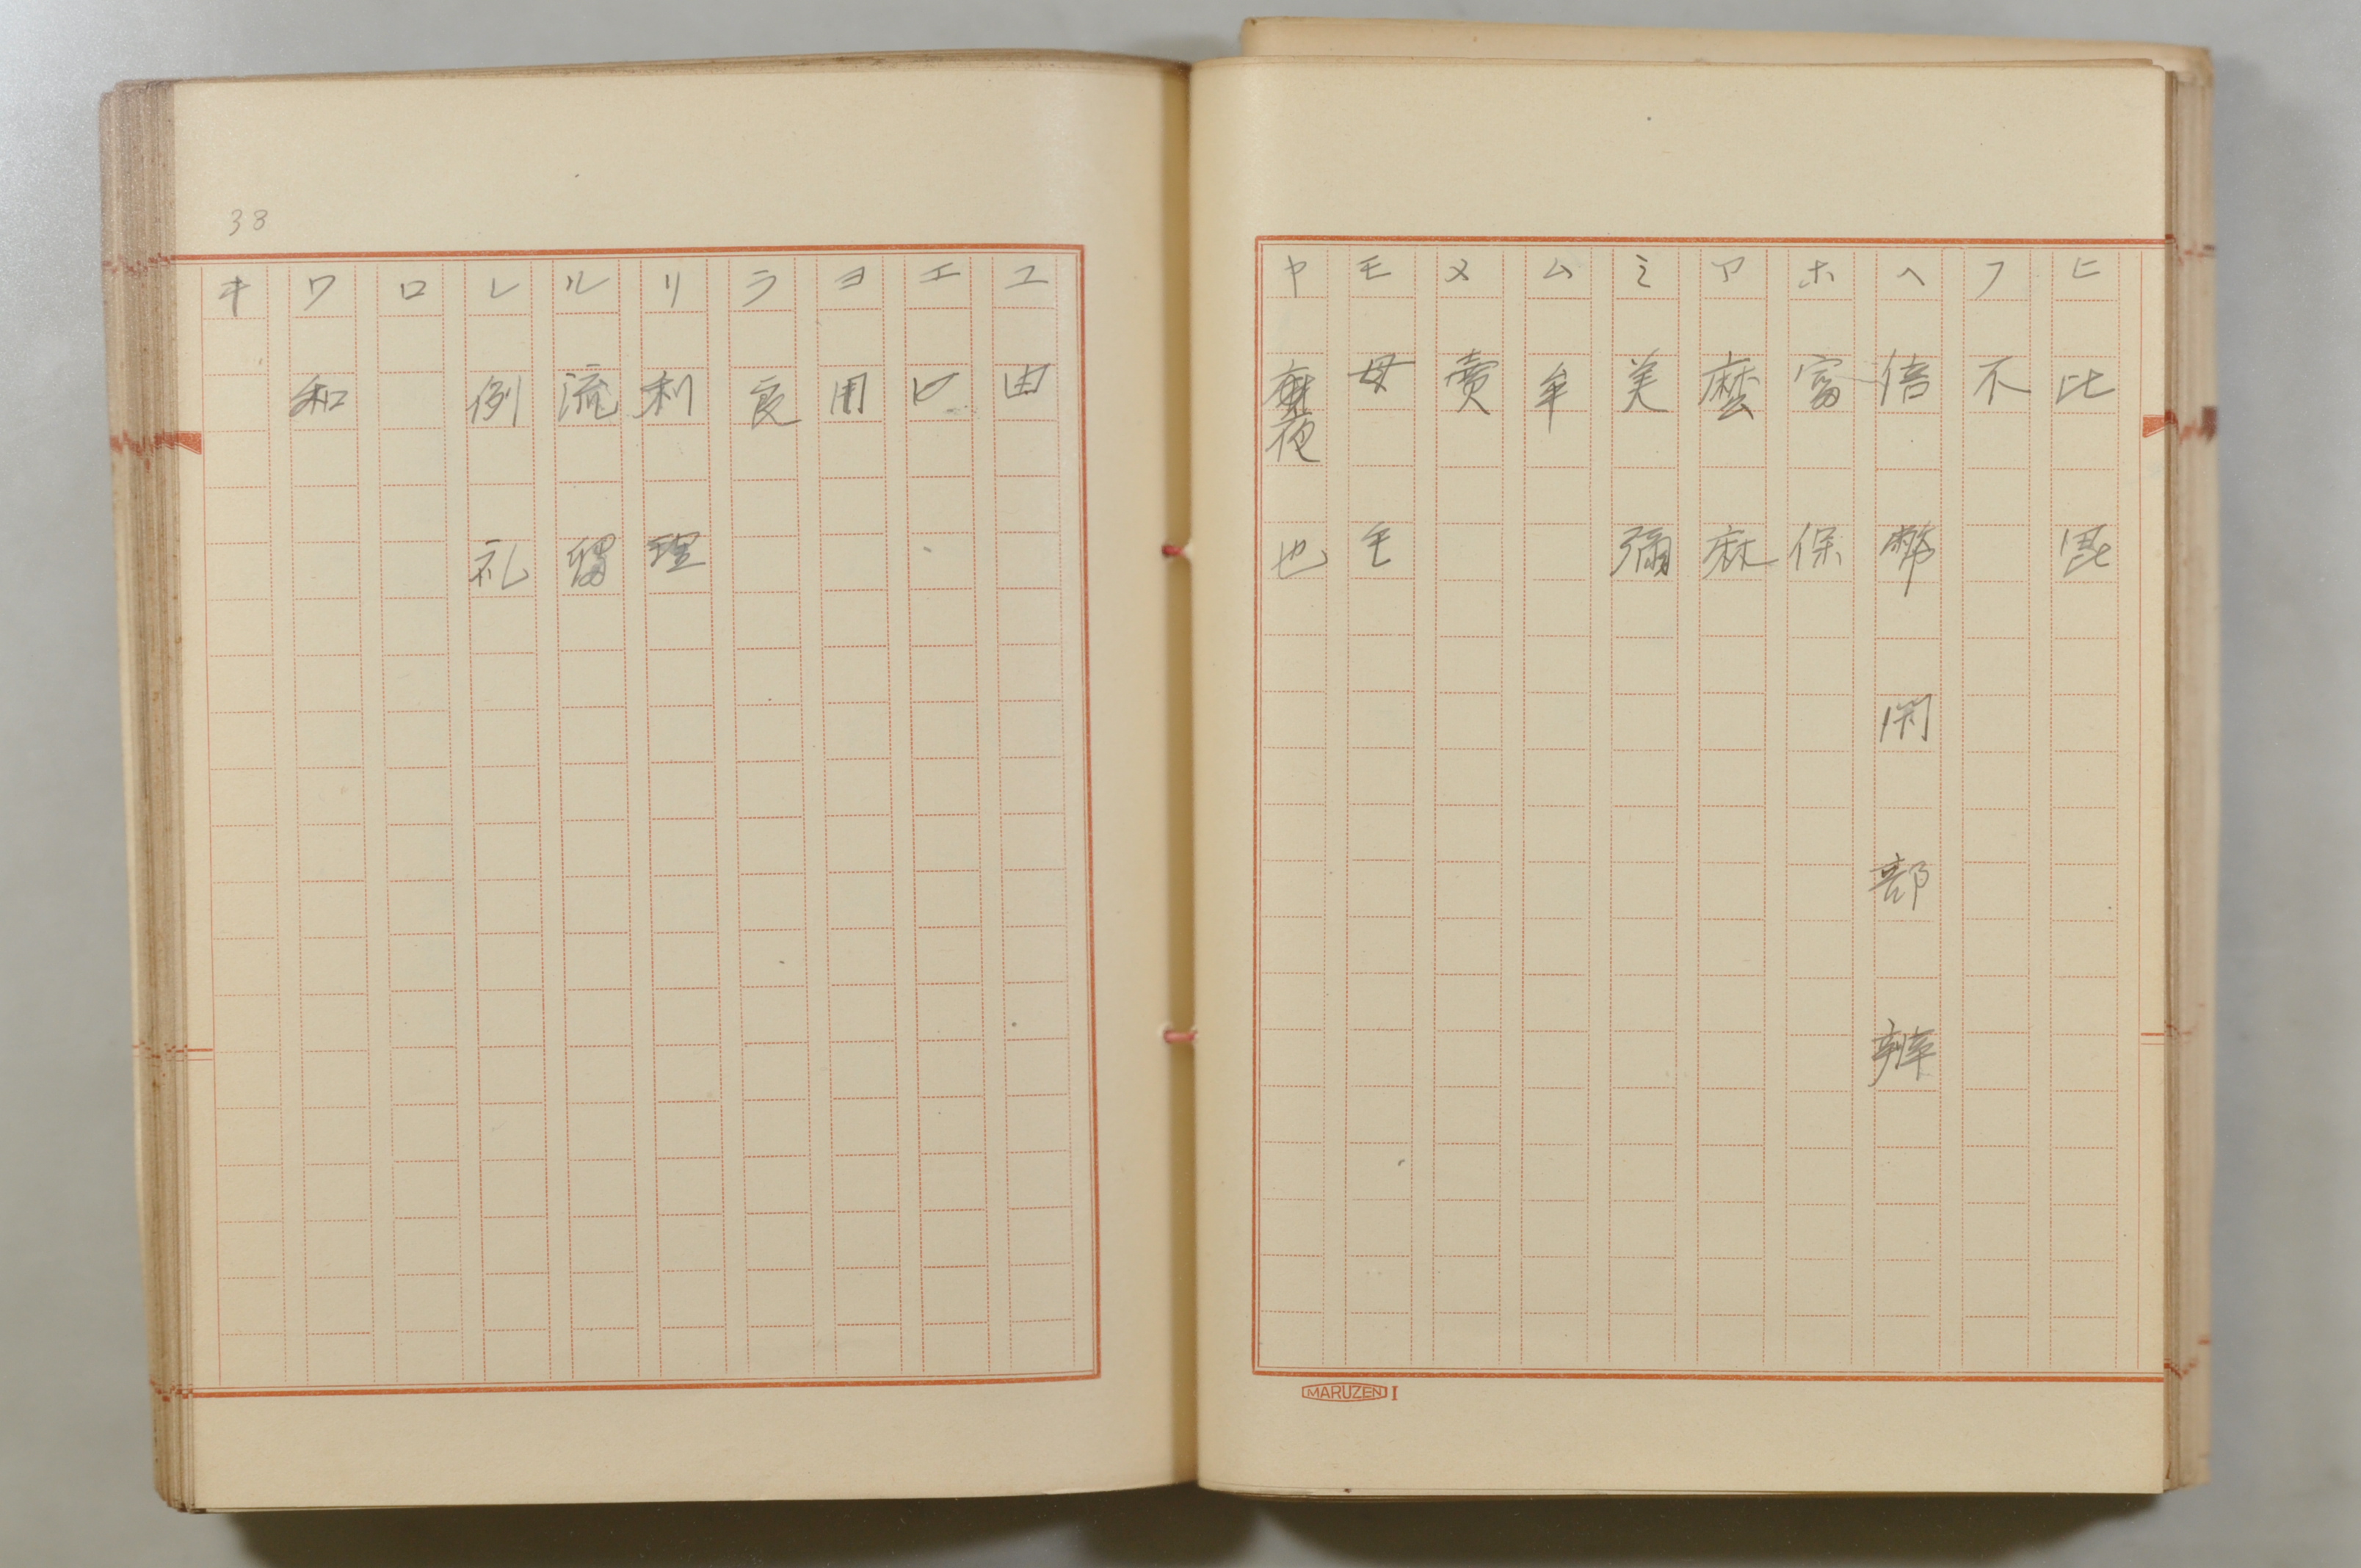 ヒ 比 毘
フ 不
ヘ 倍 幣 閇 部 辨
ホ 富 保
マ 麼 麻
ミ 美 彌
ム 牟
メ 賣
モ 母 毛
ヤ 夜 也
MARUZEN I
38
ユ 由
エ
ヨ 用
ラ 良
リ 利 理
ル 流 留
レ 例 礼
ロ
ワ 和
キ